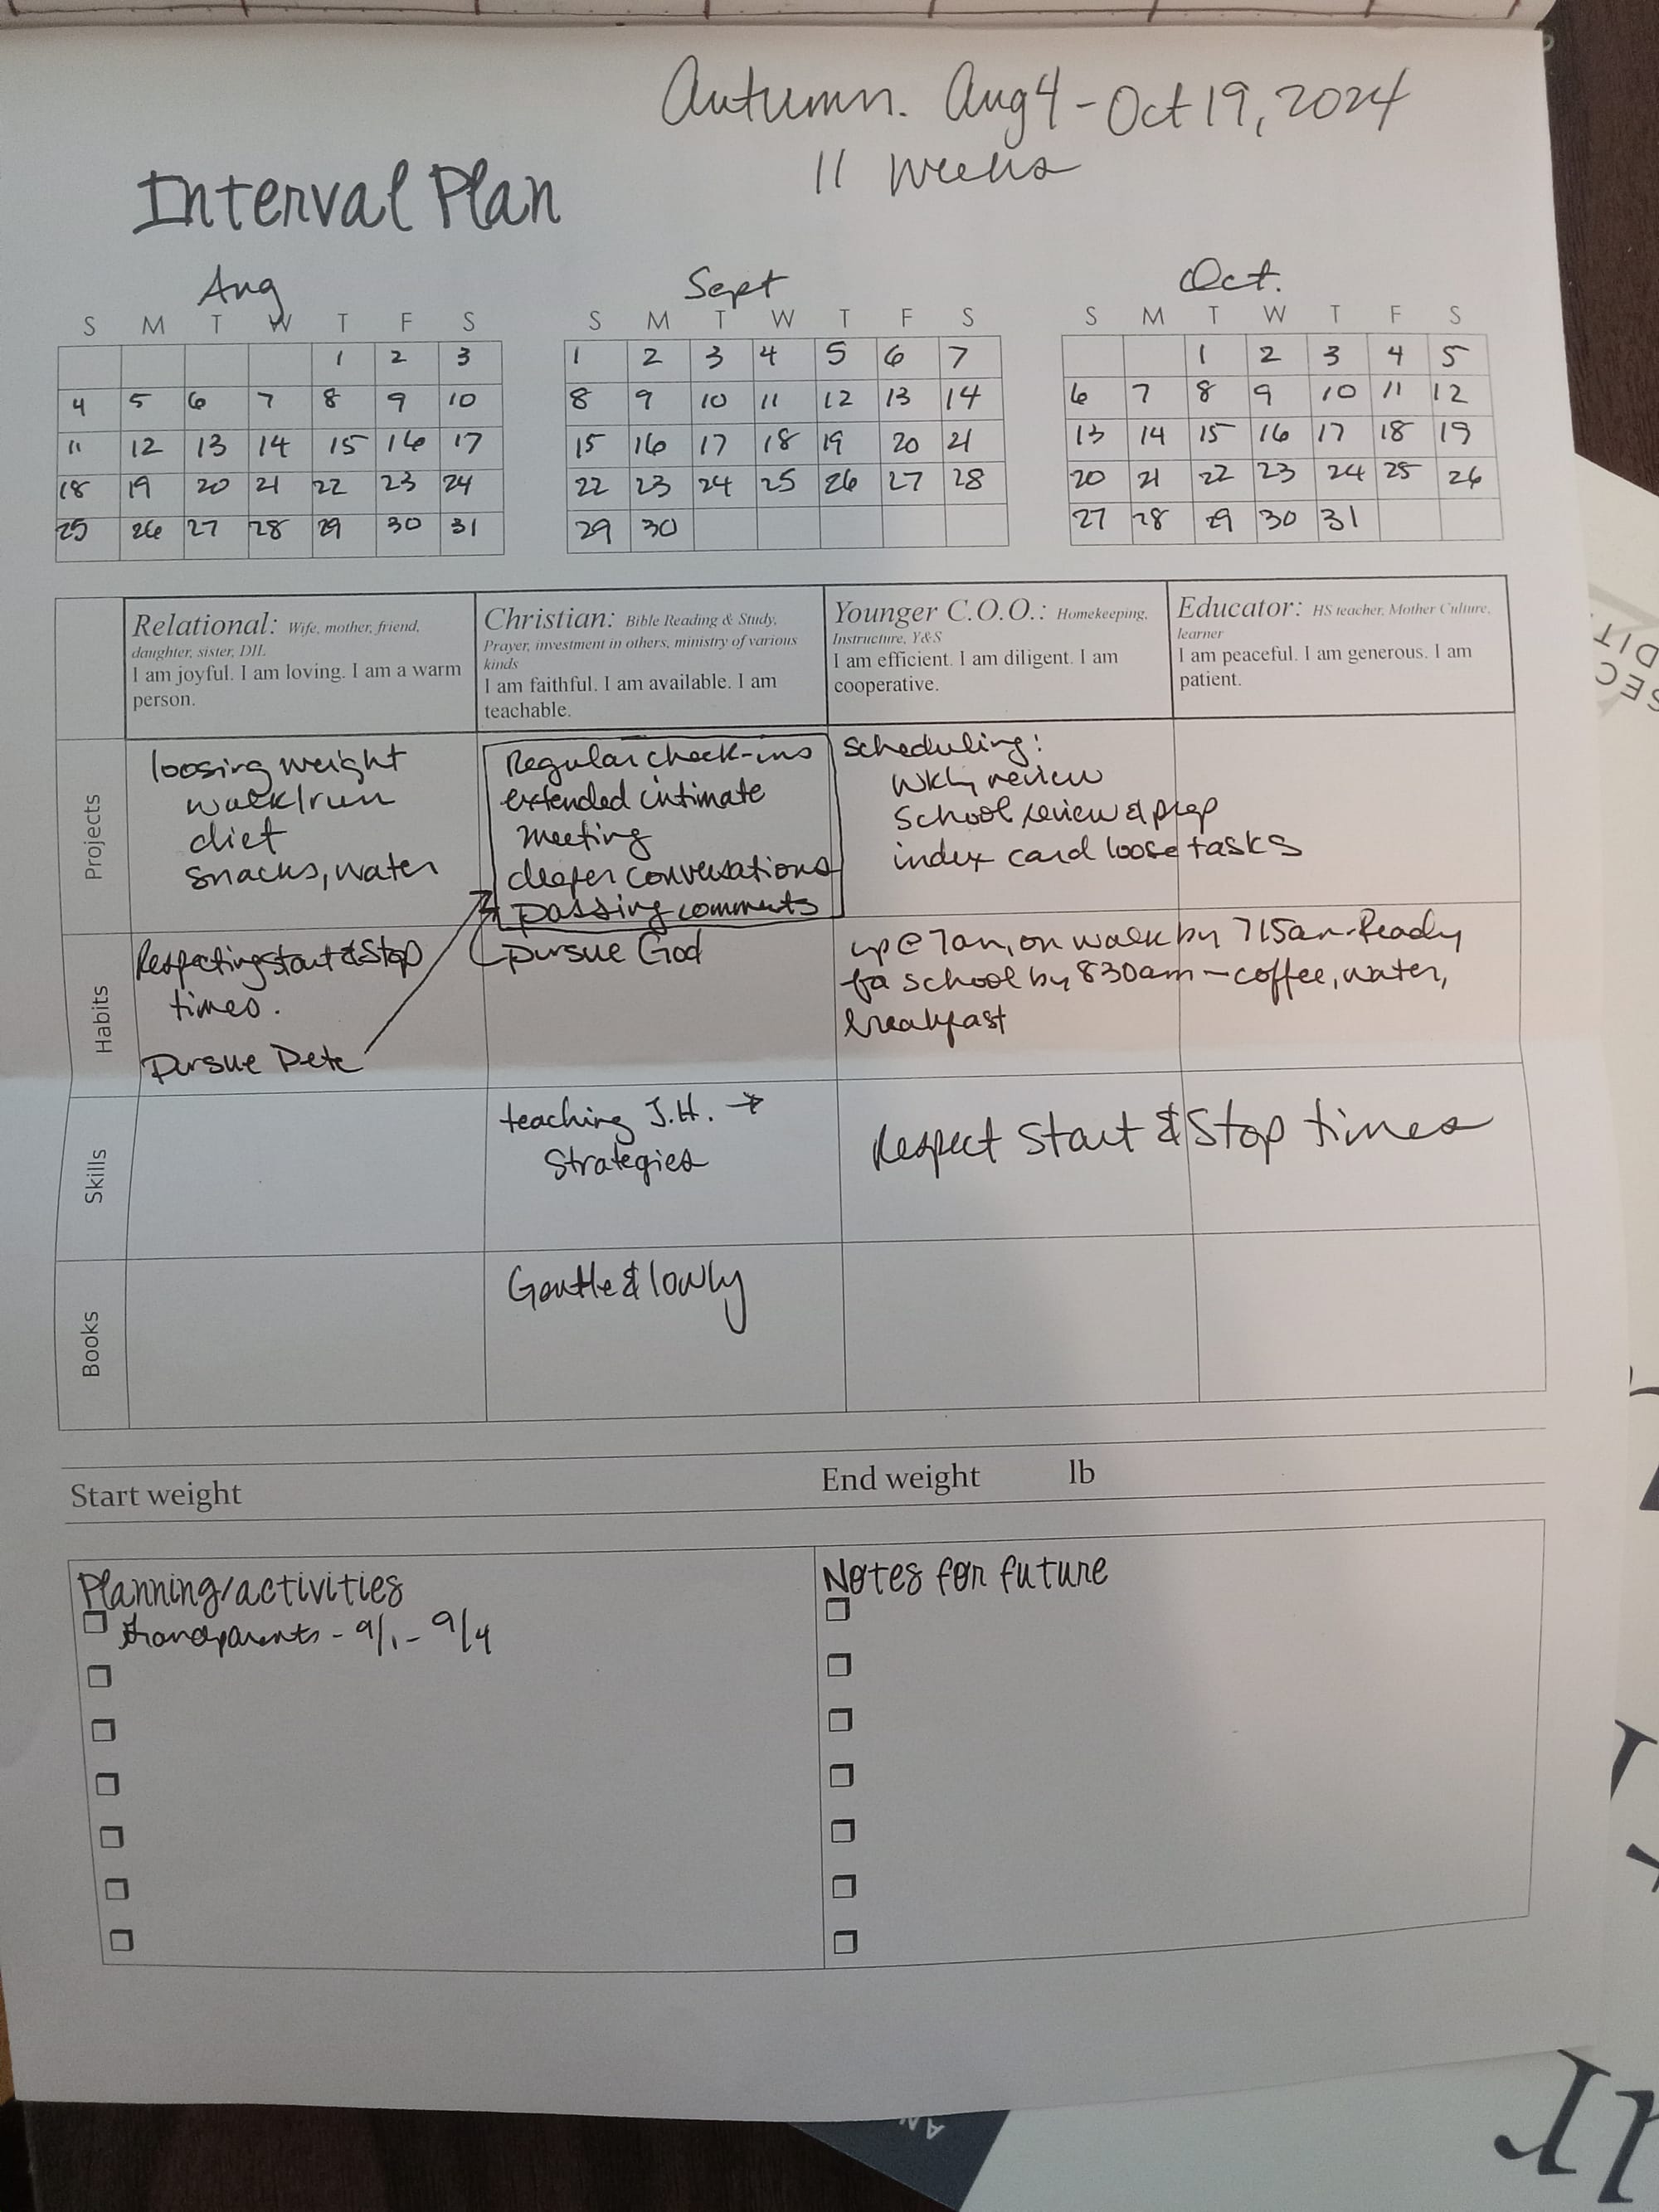 Autumn. Aug 4 - Oct 19, 2024
11 weeks
Interval Plan
Aug
S M T W T F S
1 2 3
4 5 6 7 8 9 10
11 12 13 14 15 16 17
18 19 20 21 22 23 24
25 26 27 28 29 30 31
Sept
S M T W T F S
1 2 3 4 5 6 7
8 9 10 11 12 13 14
15 16 17 18 19 20 21
22 23 24 25 26 27 28
29 30
Oct.
S M T W T F S
1 2 3 4 5
6 7 8 9 10 11 12
13 14 15 16 17 18 19
20 21 22 23 24 25 26
27 28 29 30 31
Relational: Wife, mother, friend,
daughter, sister, DIL
I am joyful. I am loving. I am a warm
person.
Christian: Bible Reading & Study,
Prayer, investment in others, ministry of various
kinds
I am faithful. I am available. I am
teachable.
Younger C.O.O.: Homekeeping,
Instructure, Y&S
I am efficient. I am diligent. I am
cooperative.
Educator: HS teacher, Mother Culture,
learner
I am peaceful. I am generous. I am
patient.
Projects
loosing weight
walk/run
diet
snacks, water
Regular check-ins
extended intimate
meeting
deeper conversations
passing comments
scheduling:
wkly review
school review & prep
index card loose tasks
Habits
Respecting start & stop
times.
Pursue Pete
pursue God
up @ 7am, on walk by 715am - Ready
for school by 830am - coffee, water,
breakfast
Skills
teaching J.H. →
strategies
Respect Start & Stop times
Books
Gentle & lowly
Start weight
End weight lb
Planning/activities
Grandparents - 9/1 - 9/4
Notes for future